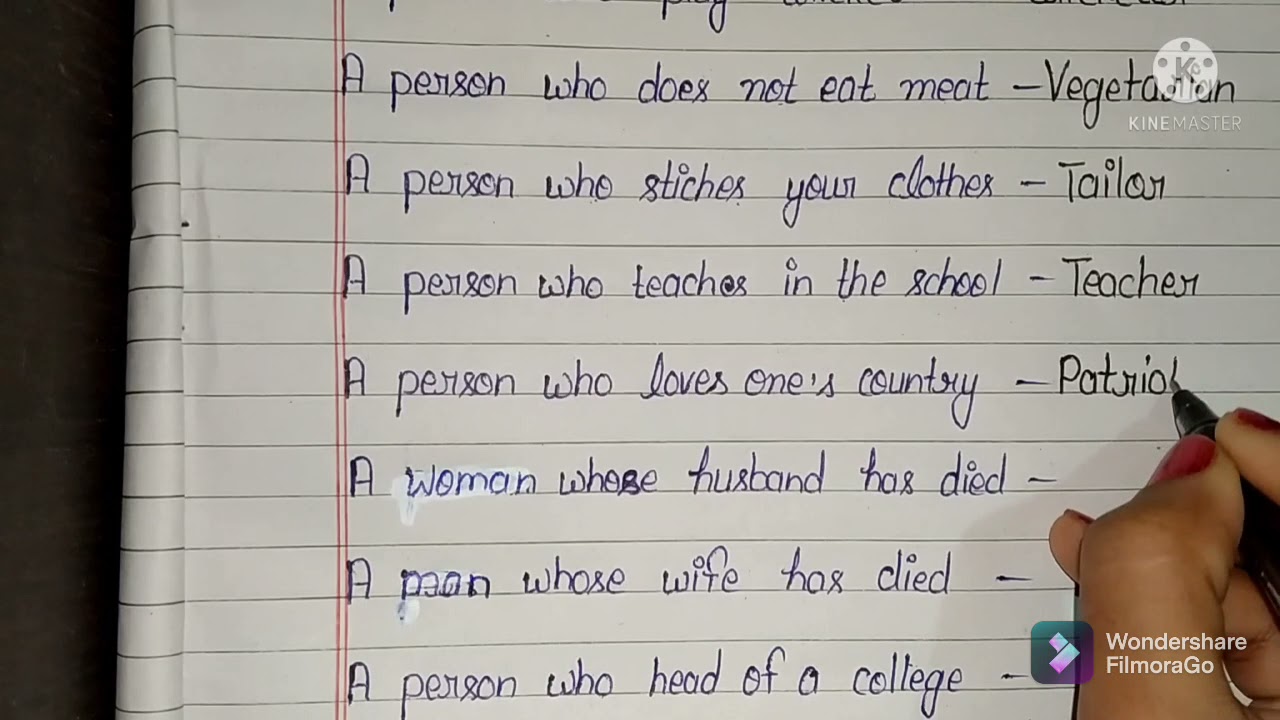 A person who does not eat meat - Vegetarian
KINEMASTER
A person who stiches your clothes - Tailor
A person who teaches in the school - Teacher
A person who loves one's country - Patriot
A woman whose husband has died -
A man whose wife has died -
Wondershare
FilmoraGo
A person who head of a college -